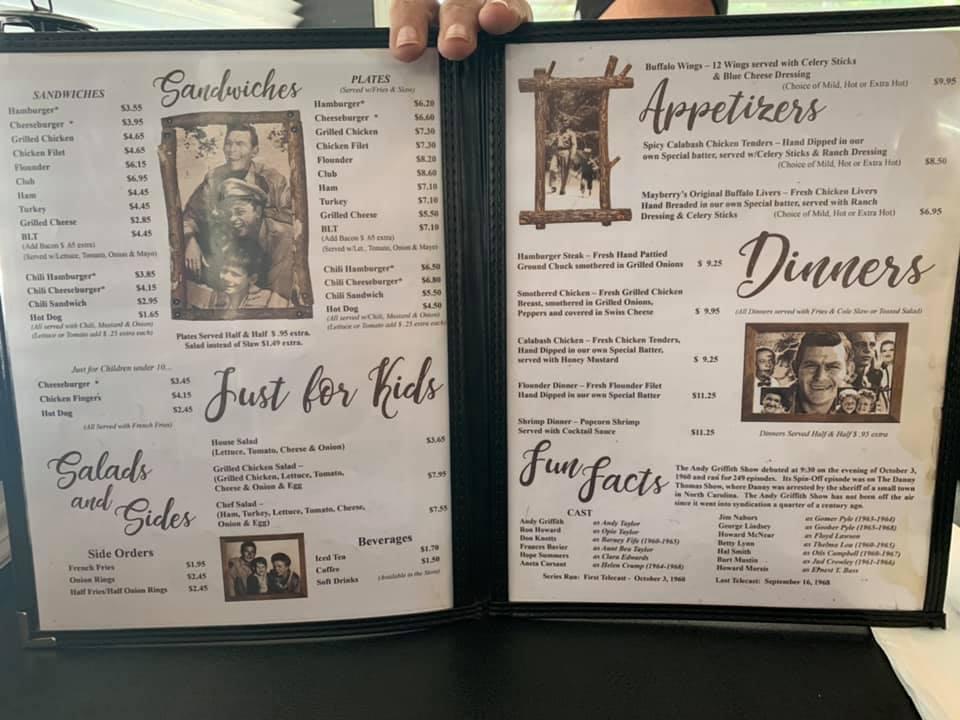 Sandwiches
SANDWICHES
Hamburger* $3.55
Cheeseburger * $3.95
Grilled Chicken $4.65
Chicken Filet $4.65
Flounder $6.15
Club $6.95
Ham $4.45
Turkey $4.45
Grilled Cheese $2.85
BLT $4.45
(Add Bacon $ .65 extra)
(Served w/Lettuce, Tomato, Onion & Mayo)
Chili Hamburger* $3.85
Chili Cheeseburger* $4.15
Chili Sandwich $2.95
Hot Dog $1.65
(All served with Chili, Mustard & Onion)
(Lettuce or Tomato add $ .25 extra each)
PLATES
(Served w/Fries & Slaw)
Hamburger* $6.20
Cheeseburger * $6.60
Grilled Chicken $7.30
Chicken Filet $7.30
Flounder $8.20
Club $8.60
Ham $7.10
Turkey $7.10
Grilled Cheese $5.50
BLT $7.10
(Add Bacon $ .65 extra)
(Served w/Let., Tomato, Onion & Mayo)
Chili Hamburger* $6.50
Chili Cheeseburger* $6.80
Chili Sandwich $5.50
Hot Dog $4.50
(All served w/Chili, Mustard & Onion)
(Lettuce or Tomato add $ .25 extra each)
Plates Served Half & Half $ .95 extra.
Salad instead of Slaw $1.49 extra.
Just for Kids
Just for Children under 10...
Cheeseburger * $3.45
Chicken Fingers $4.15
Hot Dog $2.45
(All Served with French Fries)
Salads
and
Sides
House Salad $3.65
(Lettuce, Tomato, Cheese & Onion)
Grilled Chicken Salad –
(Grilled Chicken, Lettuce, Tomato, $7.95
Cheese & Onion & Egg
Chef Salad –
(Ham, Turkey, Lettuce, Tomato, Cheese, $7.55
Onion & Egg)
Side Orders
French Fries $1.95
Onion Rings $2.45
Half Fries/Half Onion Rings $2.45
Beverages
Iced Tea $1.70
Coffee $1.50
Soft Drinks (Available in the Store)
Buffalo Wings – 12 Wings served with Celery Sticks
& Blue Cheese Dressing
(Choice of Mild, Hot or Extra Hot) $9.95
Appetizers
Spicy Calabash Chicken Tenders – Hand Dipped in our
own Special batter, served w/Celery Sticks & Ranch Dressing
(Choice of Mild, Hot or Extra Hot) $8.50
Mayberry's Original Buffalo Livers – Fresh Chicken Livers
Hand Breaded in our own Special batter, served with Ranch
Dressing & Celery Sticks (Choice of Mild, Hot or Extra Hot) $6.95
Dinners
(All Dinners served with Fries & Cole Slaw or Tossed Salad)
Hamburger Steak – Fresh Hand Pattied
Ground Chuck smothered in Grilled Onions $ 9.25
Smothered Chicken – Fresh Grilled Chicken
Breast, smothered in Grilled Onions,
Peppers and covered in Swiss Cheese $ 9.95
Calabash Chicken – Fresh Chicken Tenders,
Hand Dipped in our own Special Batter,
served with Honey Mustard $ 9.25
Flounder Dinner – Fresh Flounder Filet
Hand Dipped in our own Special Batter $11.25
Shrimp Dinner – Popcorn Shrimp
Served with Cocktail Sauce $11.25
Dinners Served Half & Half $ .95 extra
Fun Facts
The Andy Griffith Show debuted at 9:30 on the evening of October 3,
1960 and ran for 249 episodes. Its Spin-Off episode was on The Danny
Thomas Show, where Danny was arrested by the sheriff of a small town
in North Carolina. The Andy Griffith Show has not been off the air
since it went into syndication a quarter of a century ago.
CAST
Andy Griffith as Andy Taylor
Ron Howard as Opie Taylor
Don Knotts as Barney Fife (1960-1965)
Frances Bavier as Aunt Bea Taylor
Hope Summers as Clara Edwards
Aneta Corsaut as Helen Crump (1964-1968)
Jim Nabors as Gomer Pyle (1963-1964)
George Lindsey as Goober Pyle (1965-1968)
Howard McNear as Floyd Lawson
Betty Lynn as Thelma Lou (1960-1965)
Hal Smith as Otis Campbell (1960-1967)
Burt Mustin as Jud Crowley (1961-1966)
Howard Morris as Ernest T. Bass
Series Run: First Telecast - October 3, 1960 Last Telecast: September 16, 1968